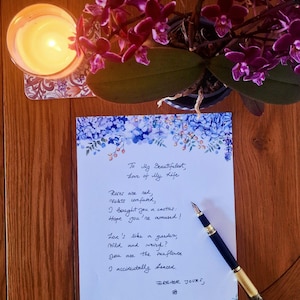 To My Beautifullest,
Love of My Life
Roses are red,
Violets confused,
I bought you a cactus.
Hope you're amused!
Lex's like a garden,
Wild and
You are the sunflower
I accidentally
FOREVER YOURS,